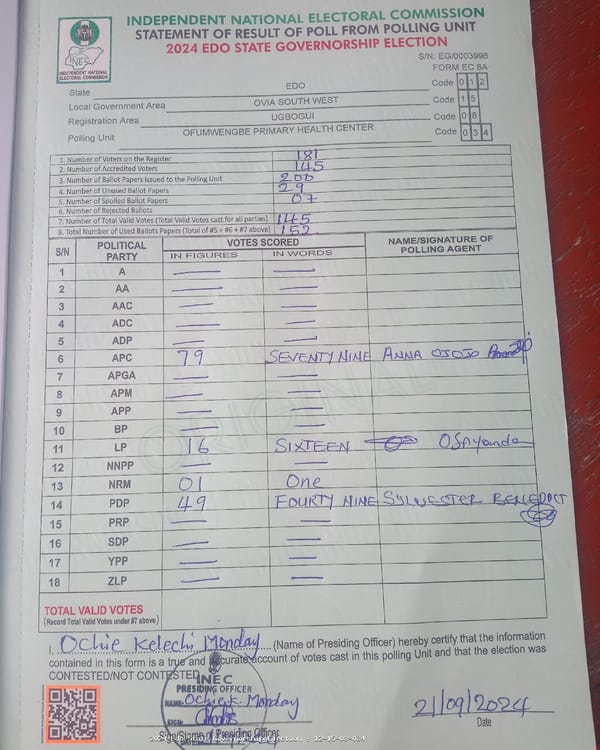 INDEPENDENT NATIONAL ELECTORAL COMMISSION
STATEMENT OF RESULT OF POLL FROM POLLING UNIT
2024 EDO STATE GOVERNORSHIP ELECTION
INEC
INDEPENDENT NATIONAL ELECTORAL COMMISSION
S/N: EG/0003996
FORM EC 8A
State EDO Code 0 1 2
Local Government Area OVIA SOUTH WEST Code 1 5
Registration Area UGBOGUI Code 0 8
Polling Unit OFUMWENGBE PRIMARY HEALTH CENTER Code 0 3 4
1. Number of Voters on the Register 181
2. Number of Accredited Voters 145
3. Number of Ballot Papers Issued to the Polling Unit 200
4. Number of Unused Ballot Papers 29
5. Number of Spoiled Ballot Papers 07
6. Number of Rejected Ballots
7. Number of Total Valid Votes (Total Valid Votes cast for all parties) 145
8. Total Number of Used Ballots Papers (Total of #5 + #6 + #7 above) 152
S/N POLITICAL PARTY VOTES SCORED NAME/SIGNATURE OF POLLING AGENT
IN FIGURES IN WORDS
1 A — —
2 AA — —
3 AAC — —
4 ADC — —
5 ADP — —
6 APC 79 SEVENTY NINE ANNA OJOJO
7 APGA — —
8 APM — —
9 APP — —
10 BP — —
ORIGINAL
11 LP 16 SIXTEEN Osayande
12 NNPP — —
13 NRM 01 One
14 PDP 49 FOURTY NINE SYLVESTER BENEDICT
15 PRP — —
16 SDP — —
17 YPP — —
18 ZLP — —
TOTAL VALID VOTES
(Record Total Valid Votes under #7 above)
I, Ochie Kelechi Monday (Name of Presiding Officer) hereby certify that the information
contained in this form is a true and accurate account of votes cast in this polling Unit and that the election was
CONTESTED/NOT CONTESTED
INEC
PRESIDING OFFICER
NAME: Ochie K. Monday
SIGN:
21/09/2024
Sign/Stamp of Presiding Officer
Date